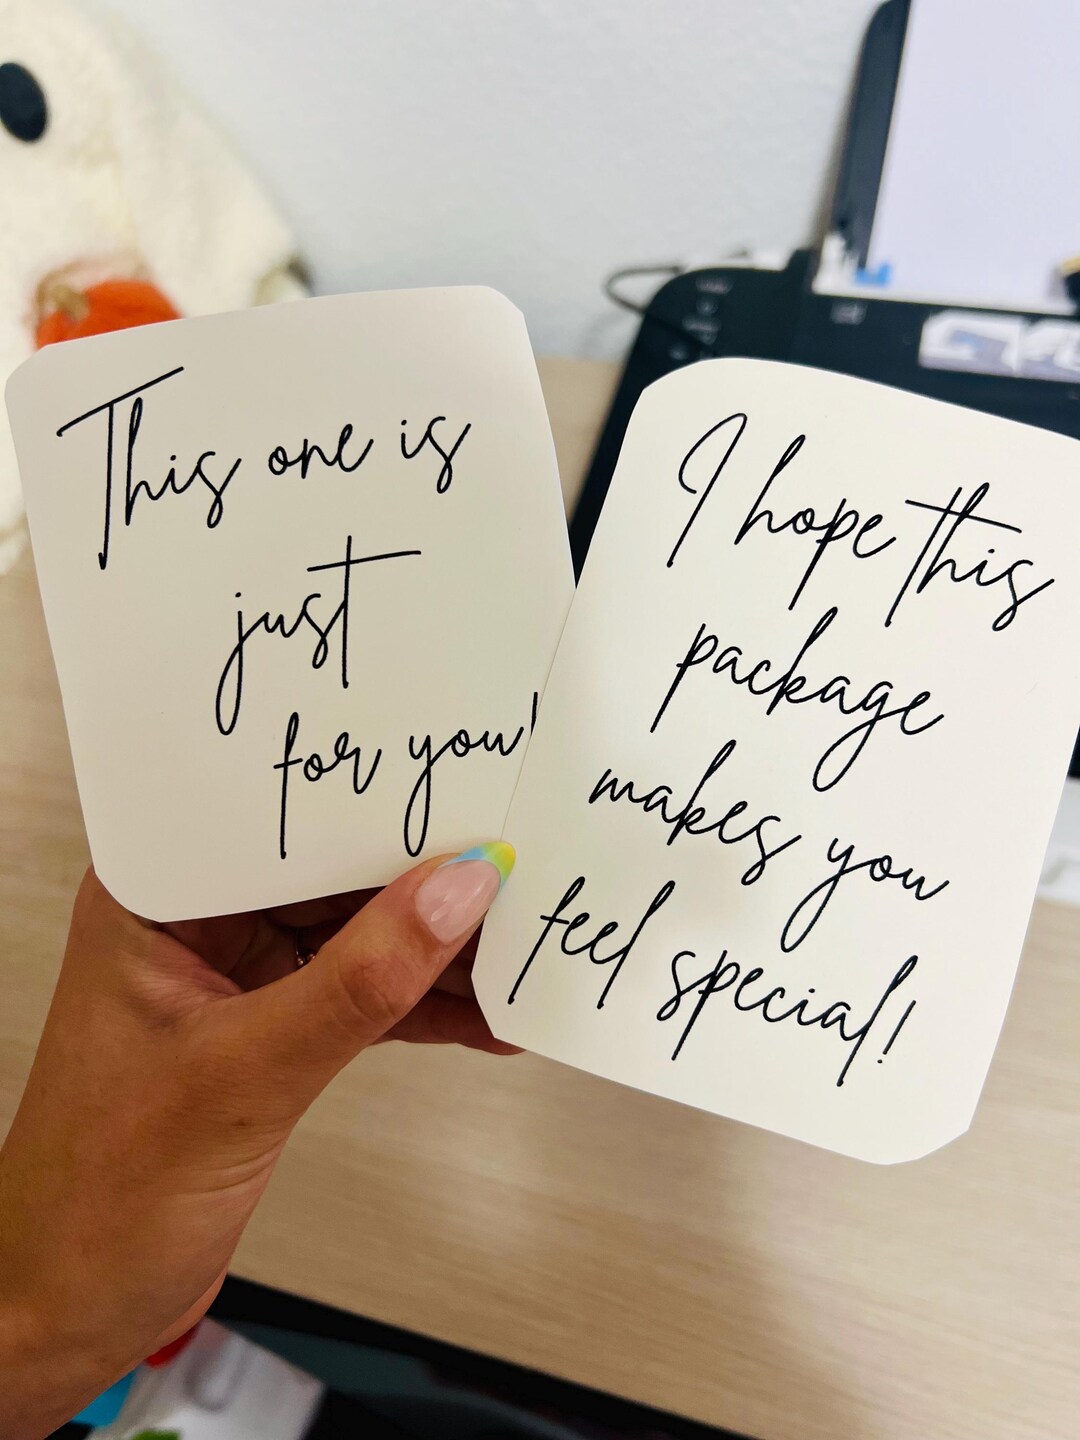 This one is
just
for you!
I hope this
package
makes you
feel special!